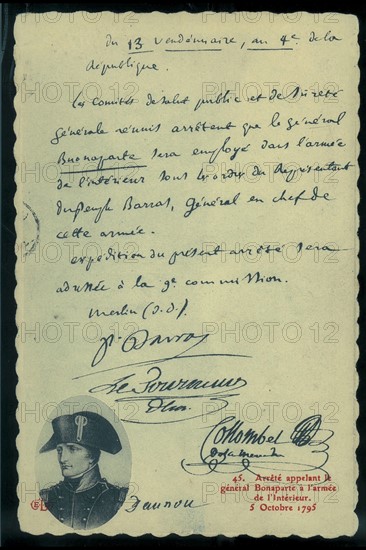 Du 13 vendémiaire, an 4e de la
République.
Les Comités de salut public et de Sûreté
générale réunis arrêtent que le général
Buonaparte sera employé dans l'armée
de l'intérieur sous les ordres du Représentant
du peuple Barras, Général en chef de
cette armée.
expédition du présent arrêté sera
adressée à la 9e commission.
Merlin (d. D.)
P. Barras
Le Tourneur
Colombel
Daunou
45. Arrêté appelant le
général Bonaparte à l'armée
de l'Intérieur.
5 Octobre 1795
PHOTO 12